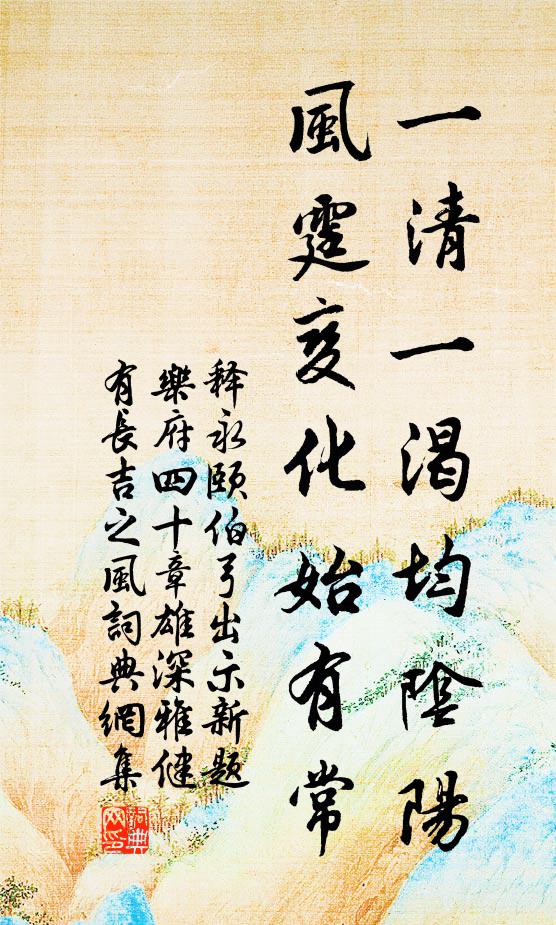 一清一渴均陰陽
風霆变化始有常
释永颐伯弓出示新题
樂府四十章雄深雅健
有長吉之風詞典網集
詞典網印